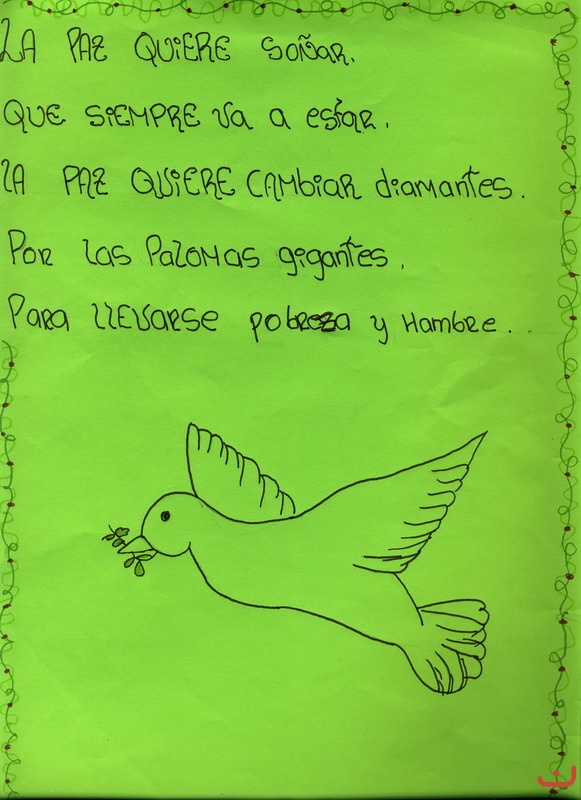 LA PAZ QUIERE SOÑAR.
QUE SIEMPRE Va a esTaR.
LA PAZ QUIERE CAMbiaR diamanTes.
PoR las PaloMas gigantes.
PaRa LLEVaRSE pobreza y Hambre..